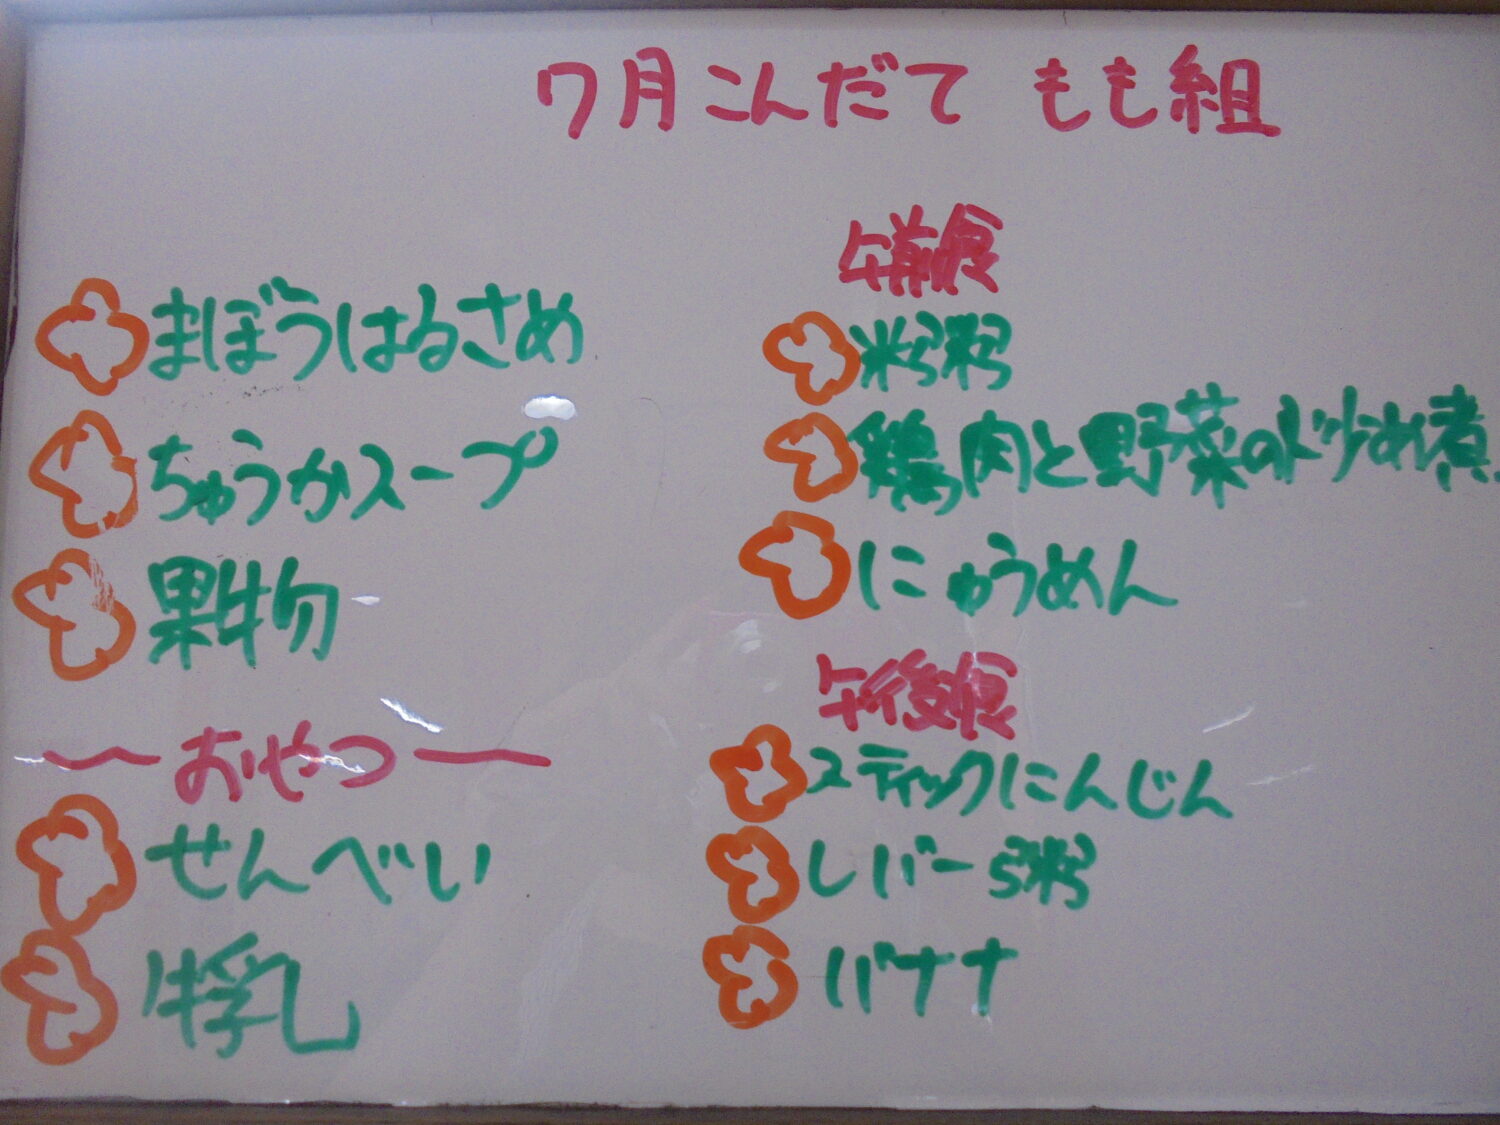 7月こんだて もも組
まぼうはるさめ
ちゅうかスープ
果物
おやつ
せんべい
牛乳
午前食
米粥
鶏肉と野菜の炒め煮
にゅうめん
午後食
スティックにんじん
レバー粥
バナナ